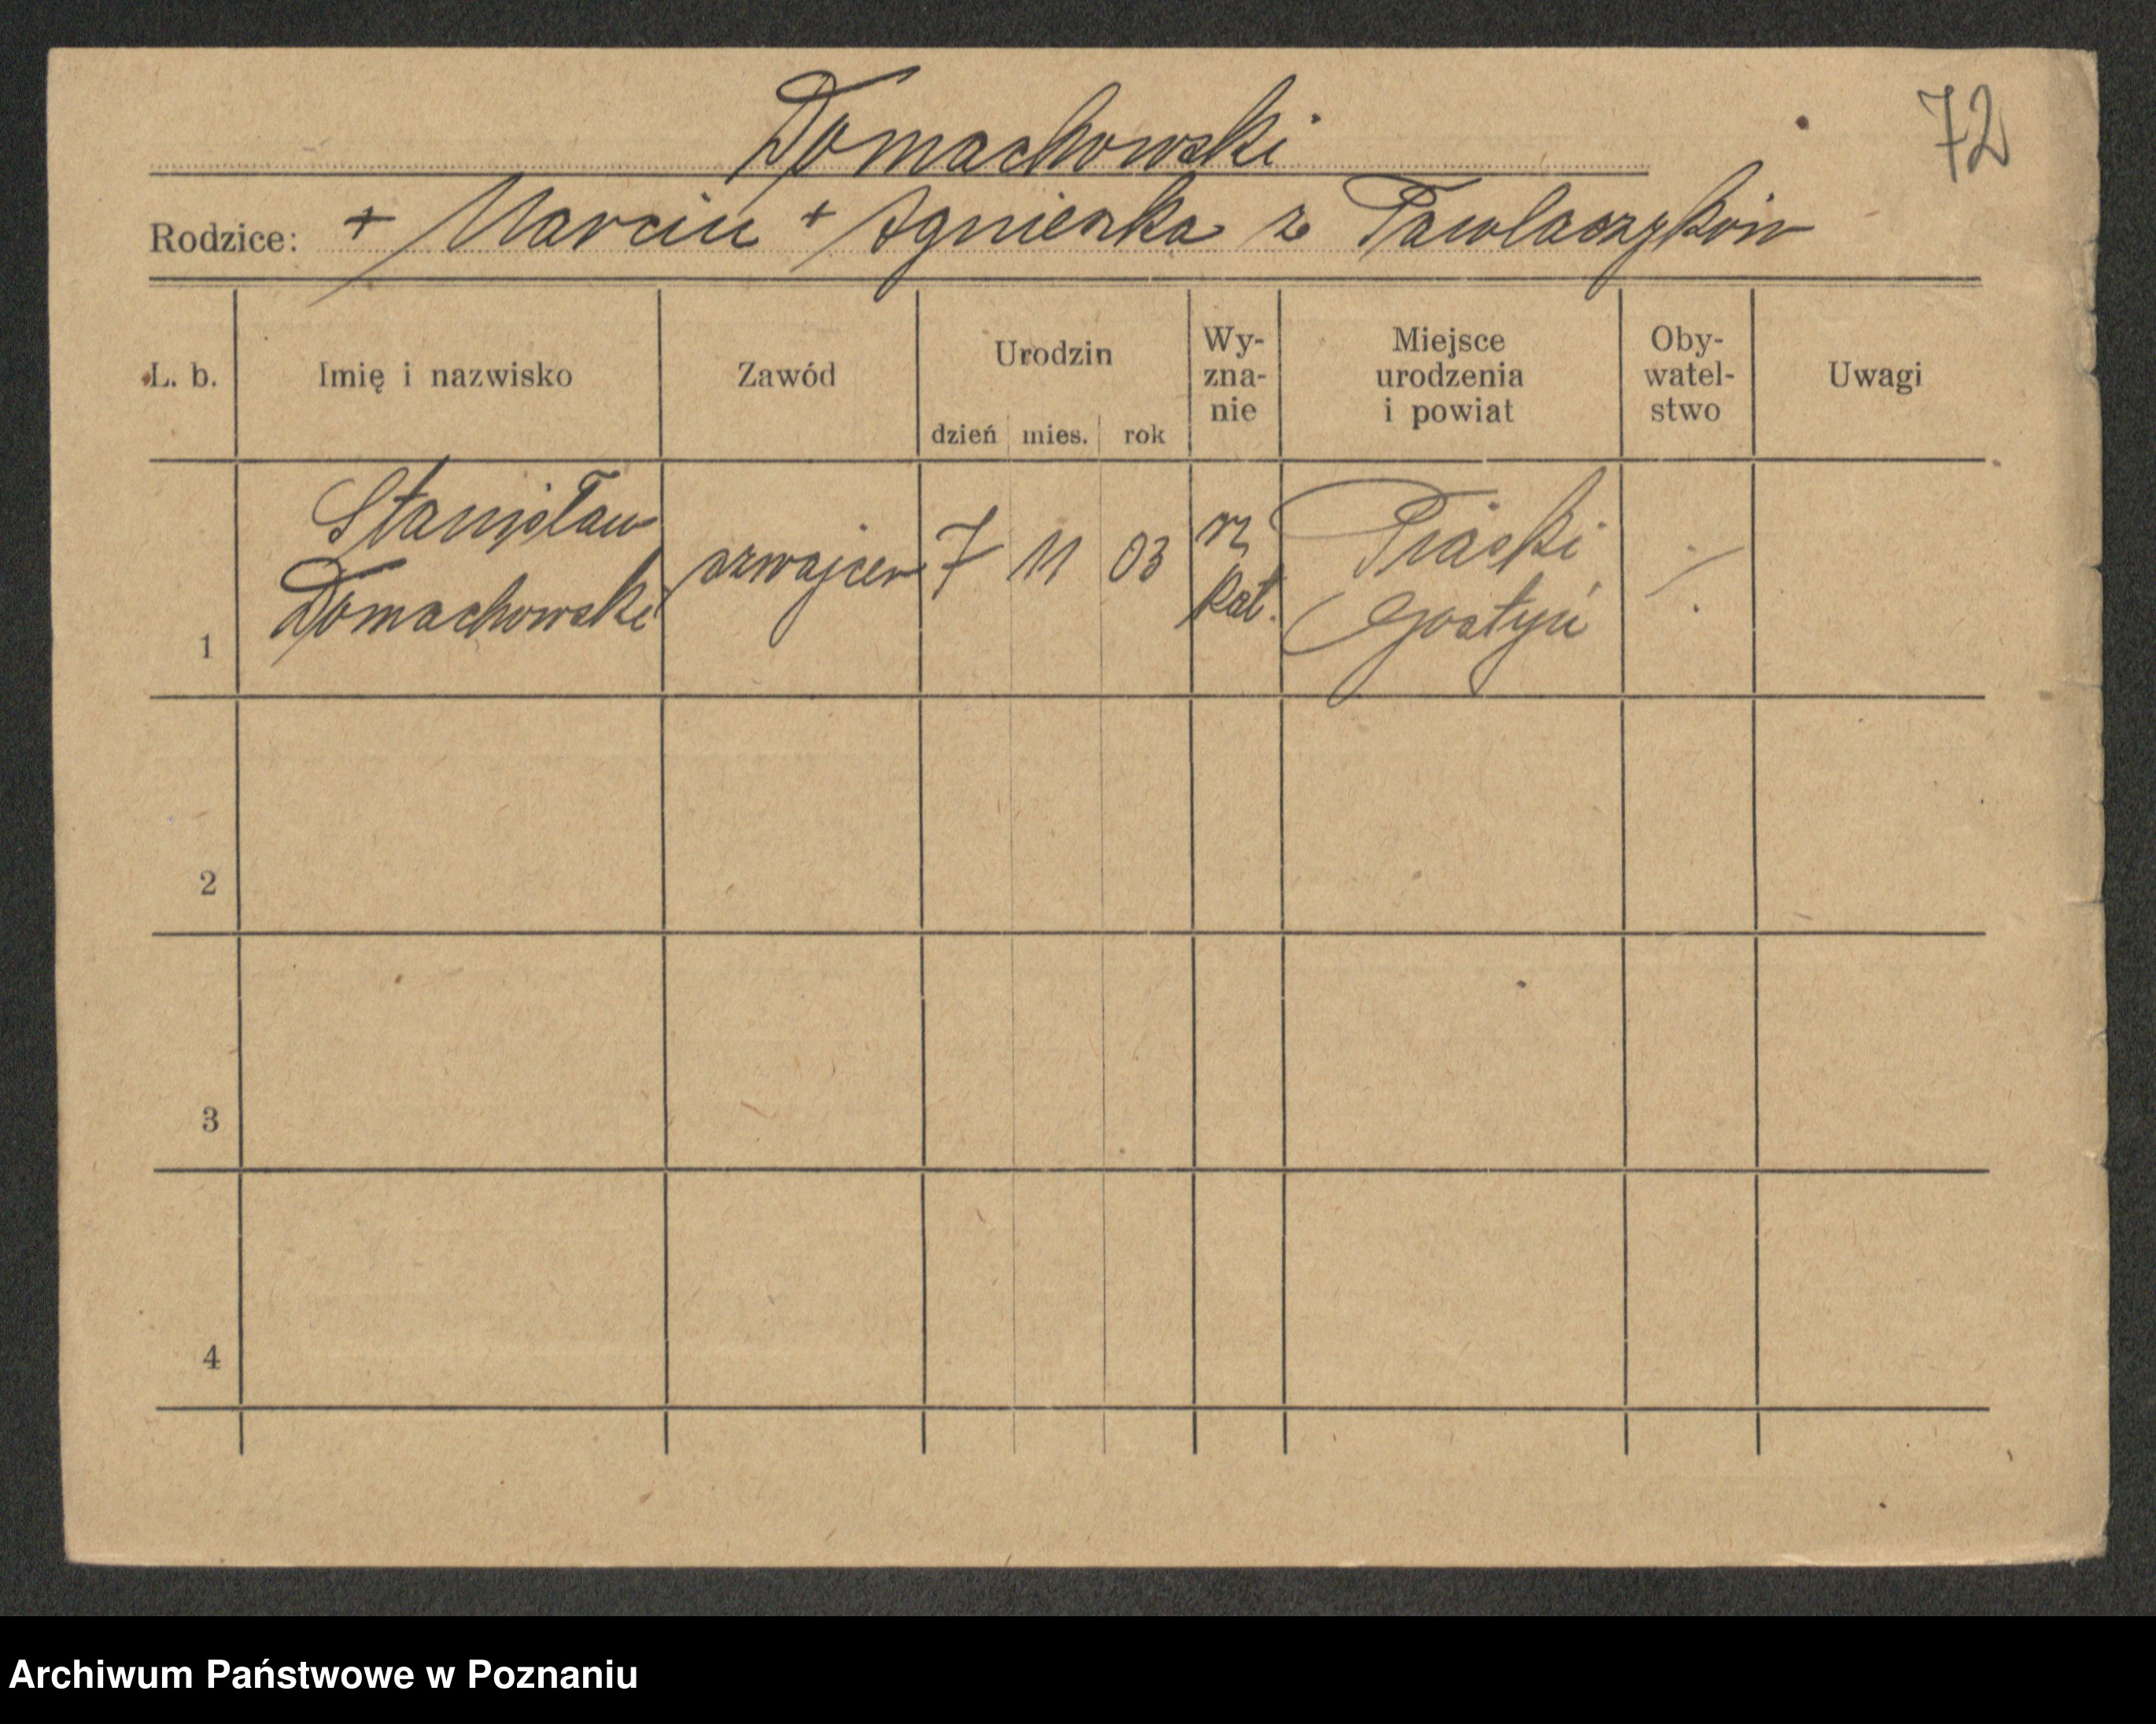 Domachowski
72
Rodzice: + Marcin + Agnieszka z Pawlaczyków
L. b. Imię i nazwisko Zawód Urodzin dzień mies. rok Wy-zna-nie Miejsce urodzenia i powiat Oby-watel-stwo Uwagi
1 Stanisław Domachowski szwajcer 7 11 03 rz. kat. Piaski Gostyń ./.
2
3
4
Archiwum Państwowe w Poznaniu